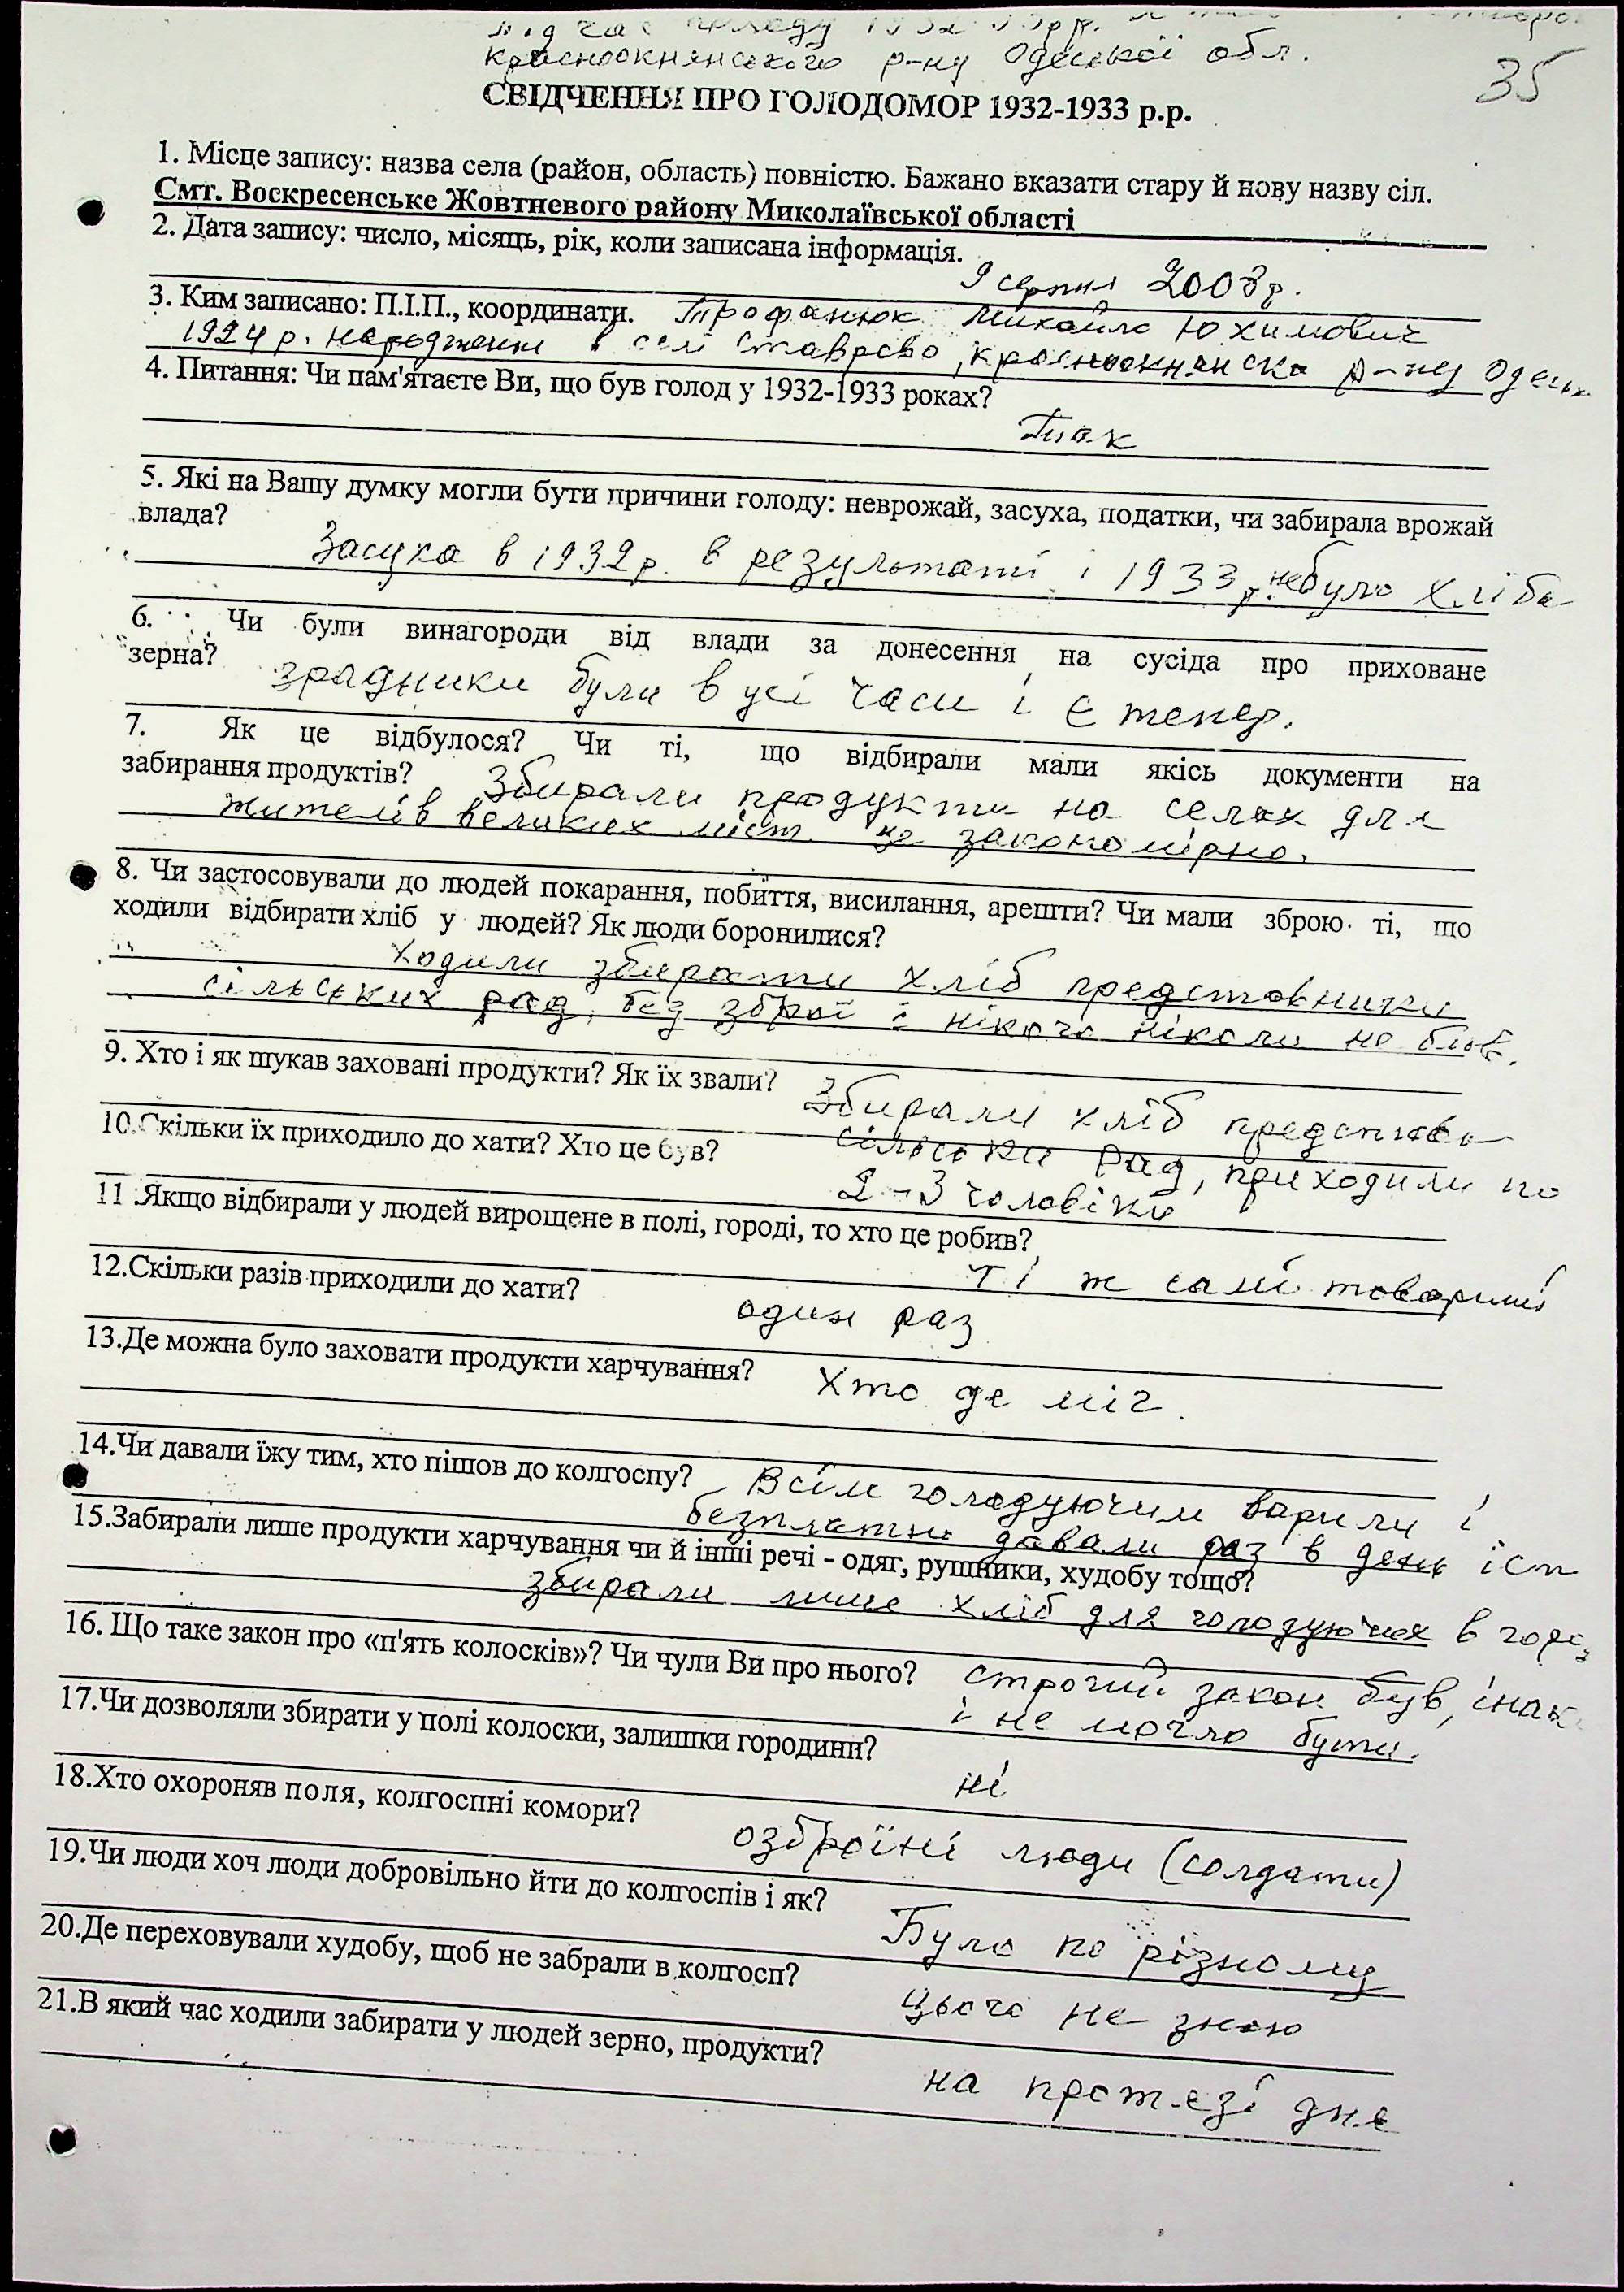 під час голоду 1932-33 рр.
красноокнянського р-ну Одеської обл.
35
СВІДЧЕННЯ ПРО ГОЛОДОМОР 1932-1933 р.р.
1. Місце запису: назва села (район, область) повністю. Бажано вказати стару й нову назву сіл.
Смт. Воскресенське Жовтневого району Миколаївської області
2. Дата запису: число, місяць, рік, коли записана інформація.
9 серпня 2008р.
3. Ким записано: П.І.П., координати. Трофанюк Михайло Юхимович
1924 р. народження в селі Ставрово, красноокнянска р-ну Одеськ
4. Питання: Чи пам'ятаєте Ви, що був голод у 1932-1933 роках?
Так
5. Які на Вашу думку могли бути причини голоду: неврожай, засуха, податки, чи забирала врожай
влада? Засуха в 1932р. в результаті і 1933р. не було хліба
6. Чи були винагороди від влади за донесення на сусіда про приховане
зерна? зрадники були в усі часи і є тепер.
7. Як це відбулося? Чи ті, що відбирали мали якісь документи на
забирання продуктів? Збирали продукти на селах для
жителів великих міст це закономірно.
8. Чи застосовували до людей покарання, побиття, висилання, арешти? Чи мали зброю ті, що
ходили відбирати хліб у людей? Як люди боронилися?
Ходили збирати хліб представники
сільських рад, без зброї і нікого ніколи не бив.
9. Хто і як шукав заховані продукти? Як їх звали?
Збирали хліб представ
10.Скільки їх приходило до хати? Хто це був? сільськи рад, приходили по
2-3 чоловіки
11 .Якщо відбирали у людей вирощене в полі, городі, то хто це робив?
Ті ж самі товариші
12.Скільки разів приходили до хати?
один раз
13.Де можна було заховати продукти харчування? Хто де міг.
14.Чи давали їжу тим, хто пішов до колгоспу? Всім голодуючим варили і
безплатно давали раз в день їст
15.Забирали лише продукти харчування чи й інші речі - одяг, рушники, худобу тощо?
збирали лише хліб для голодуючих в горо
16. Що таке закон про «п'ять колосків»? Чи чули Ви про нього? строгий закон був, інак
і не могло бути.
17.Чи дозволяли збирати у полі колоски, залишки городини?
ні
18.Хто охороняв поля, колгоспні комори?
озброїні люди (солдати)
19.Чи люди хоч люди добровільно йти до колгоспів і як?
Було по різному
20.Де переховували худобу, щоб не забрали в колгосп?
цього не знаю
21.В який час ходили забирати у людей зерно, продукти?
на протязі дня